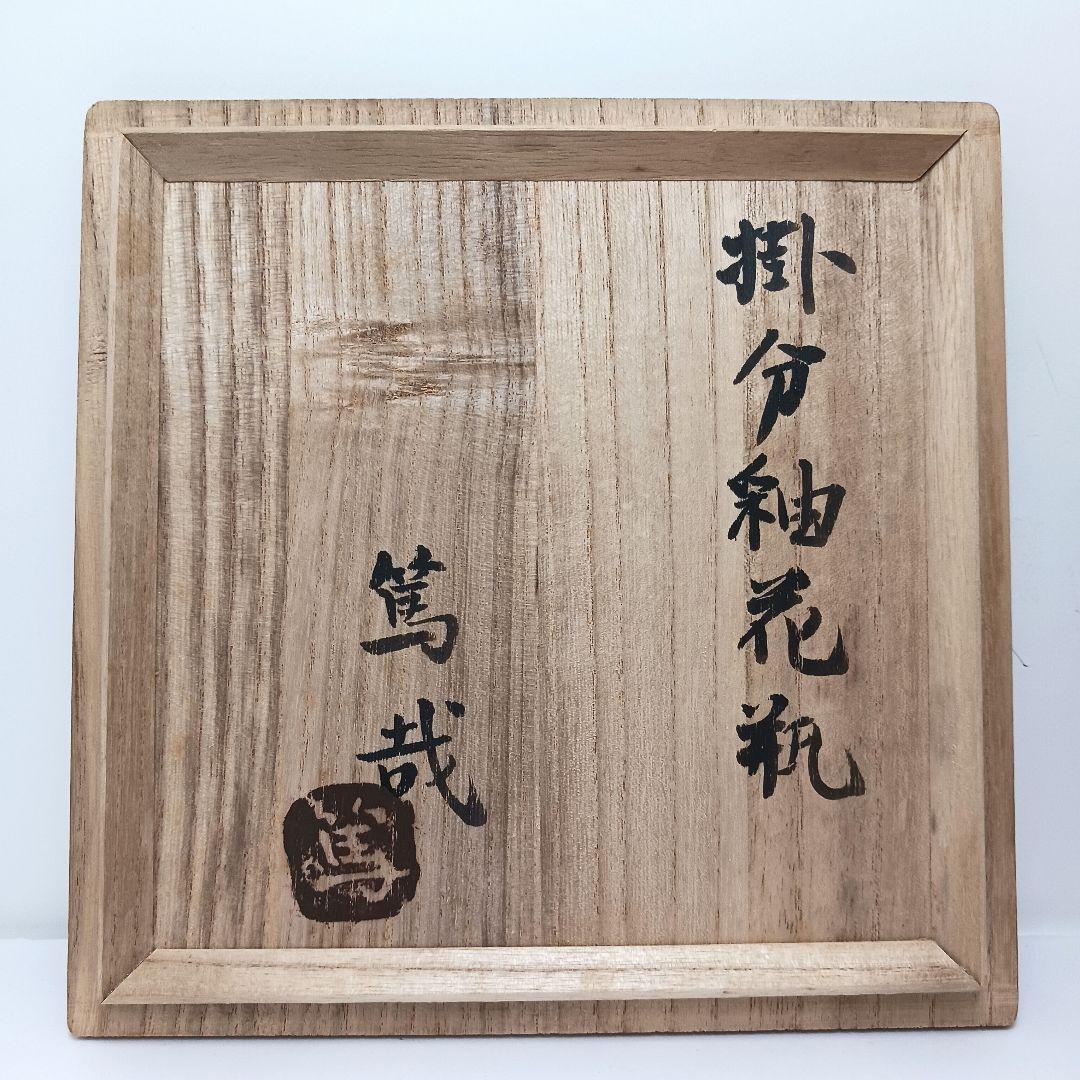 掛分釉花瓶
篤哉
篤